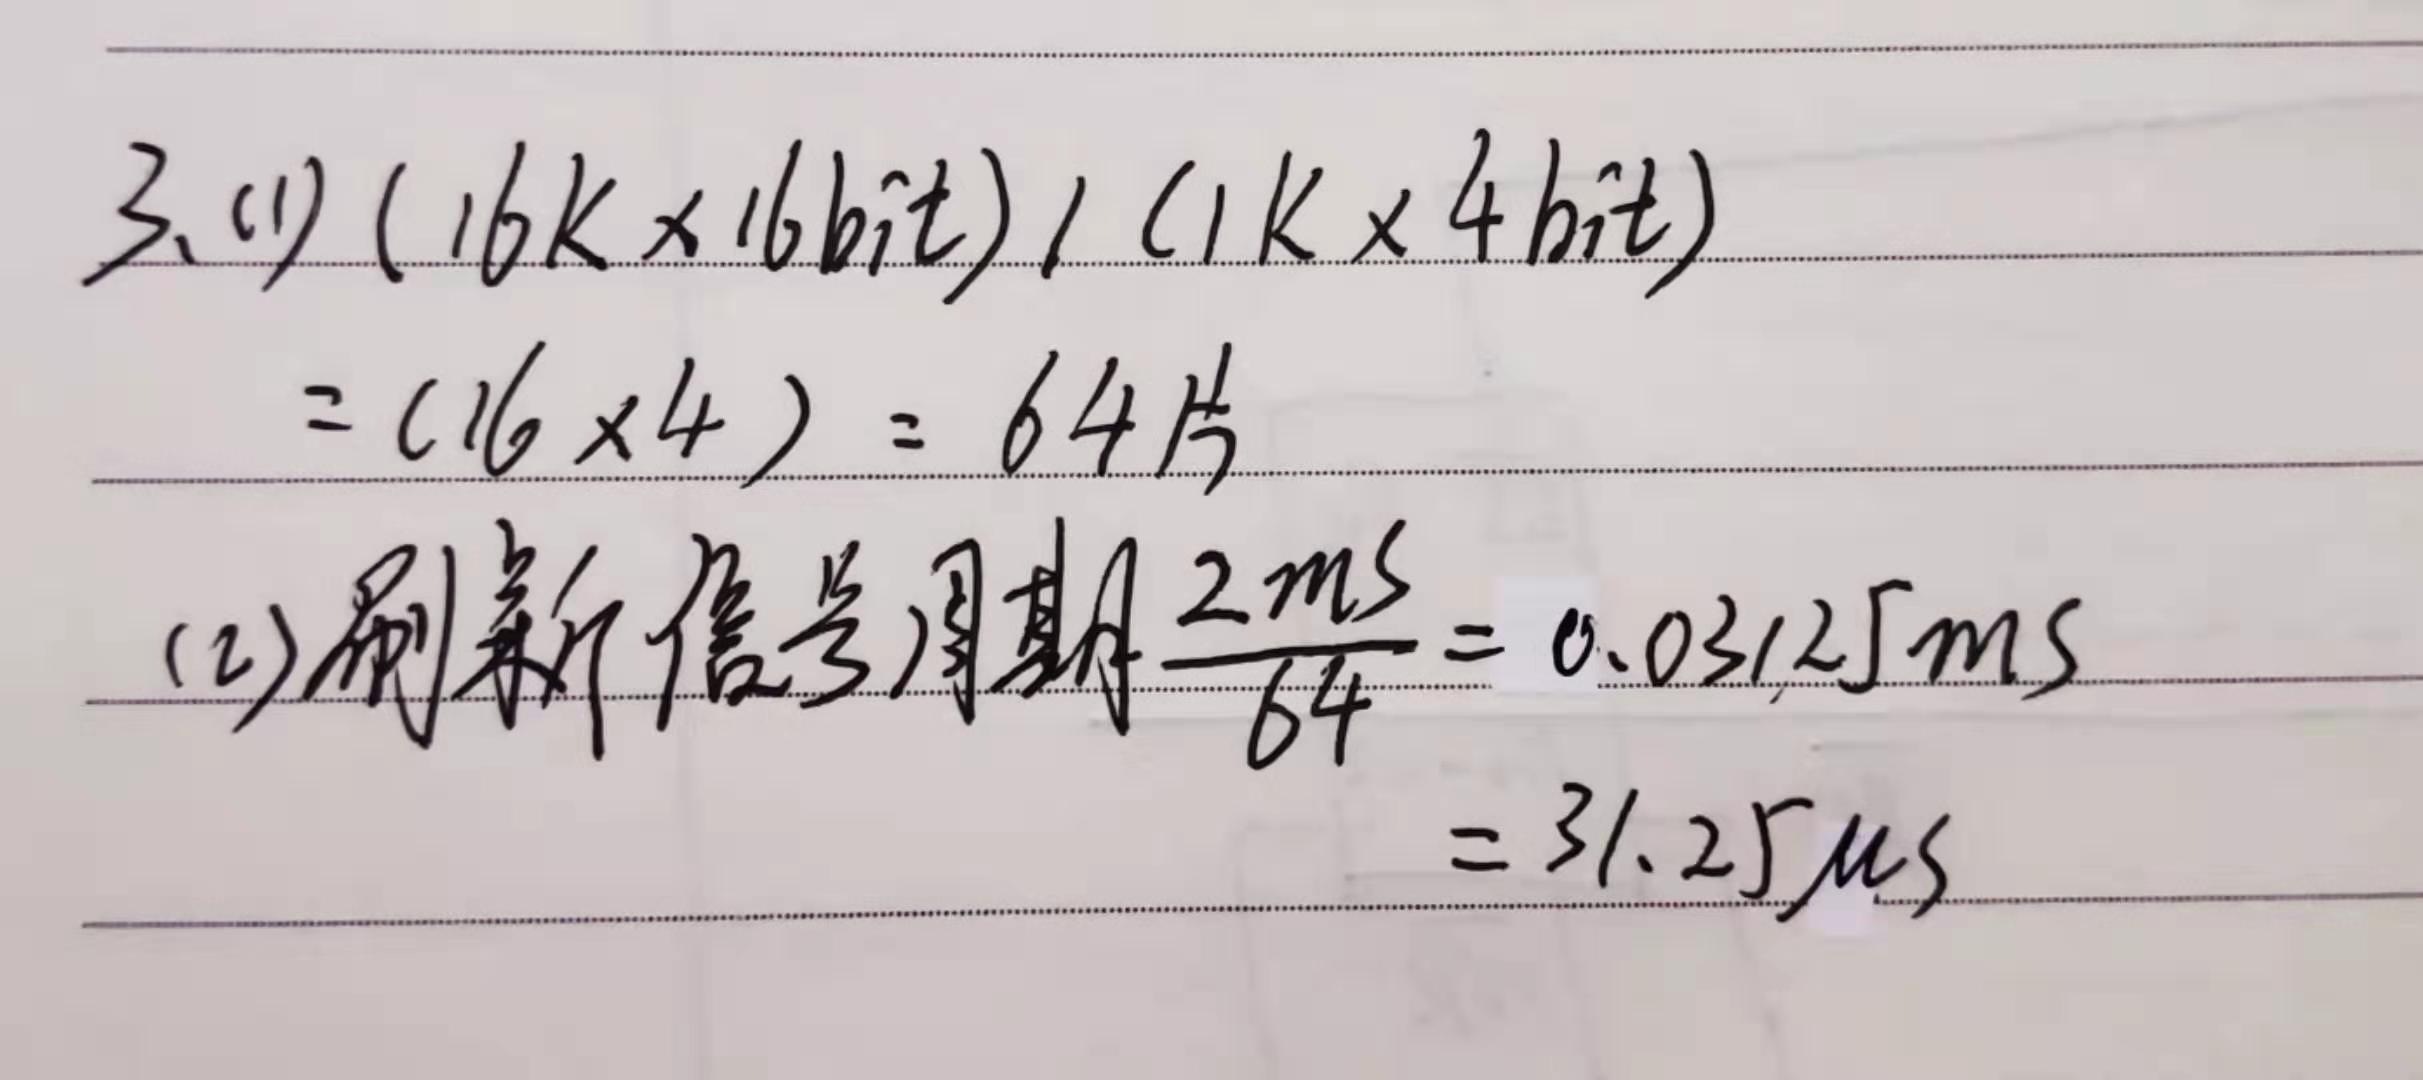 3、(1) (16K×16bit) / (1K×4bit)
= (16×4) = 64片
(2) 刷新信号周期 2ms/64 = 0.03125ms
= 31.25μs